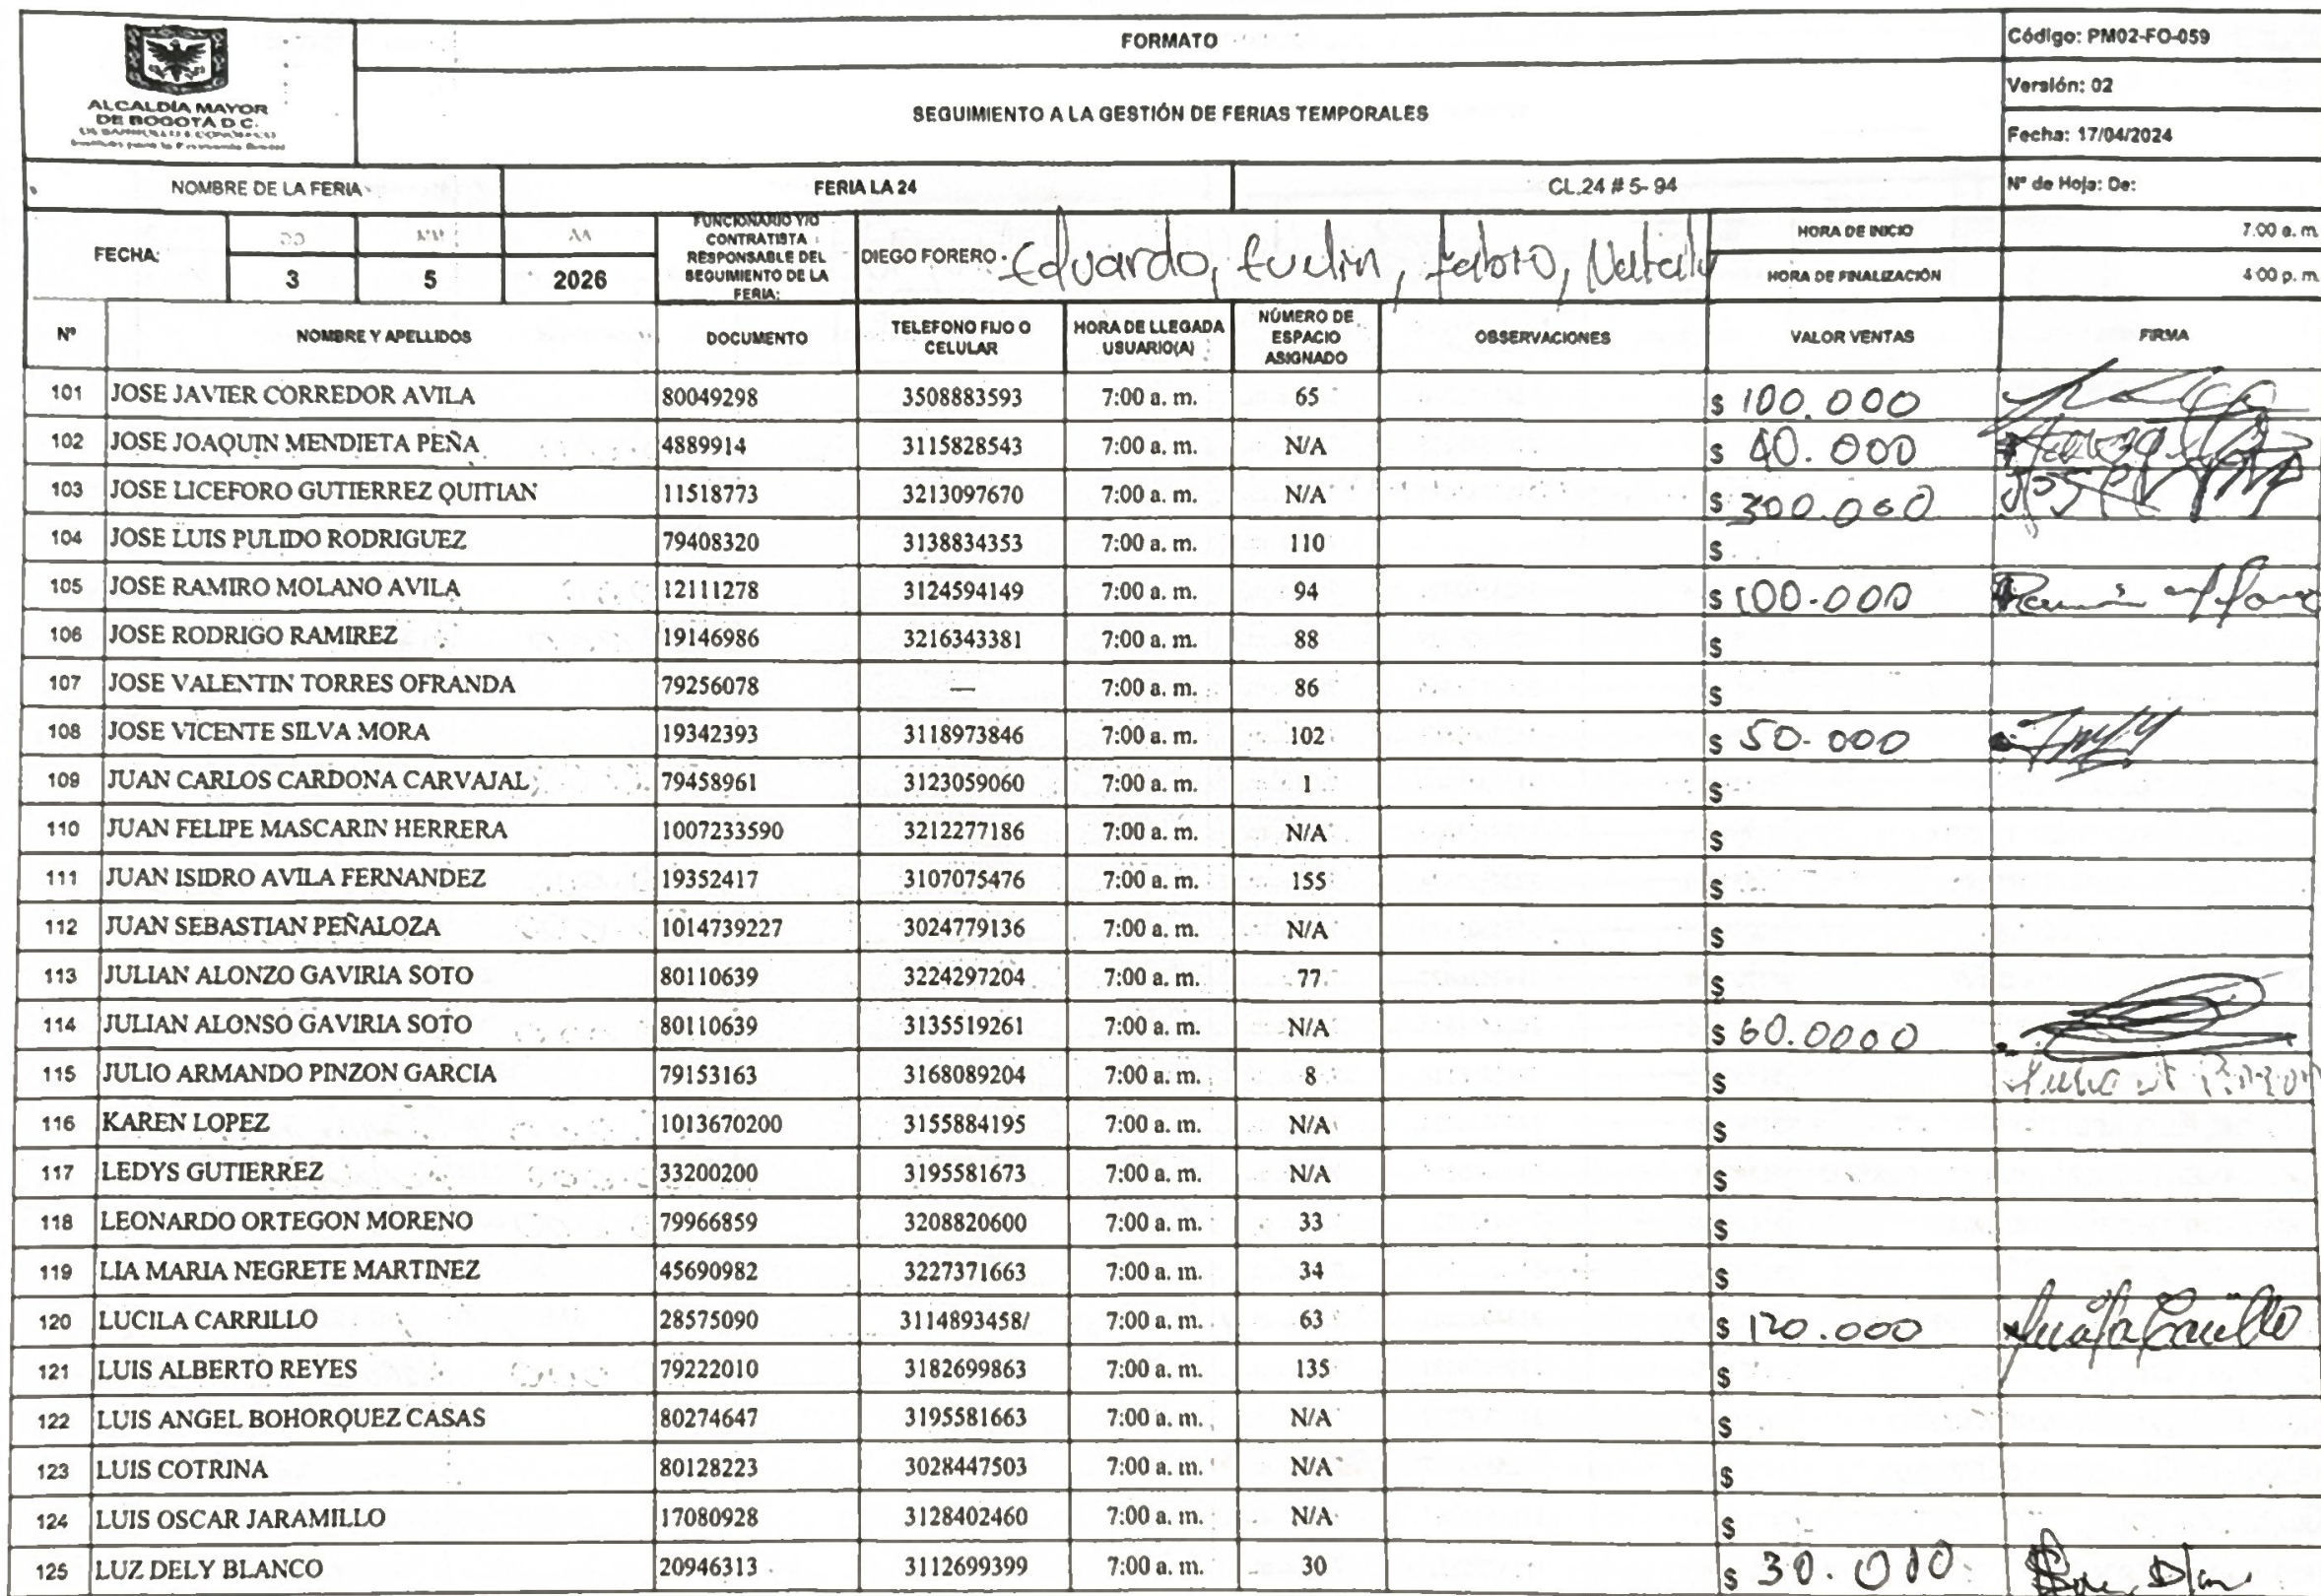 ALCALDÍA MAYOR
DE BOGOTÁ D.C.
FORMATO
SEGUIMIENTO A LA GESTIÓN DE FERIAS TEMPORALES
Código: PM02-FO-059
Versión: 02
Fecha: 17/04/2024
NOMBRE DE LA FERIA FERIA LA 24 CL.24 # 5- 94 Nº de Hoja: De:
FECHA: DD MM AA
3 5 2026
FUNCIONARIO Y/O
CONTRATISTA
RESPONSABLE DEL
SEGUIMIENTO DE LA
FERIA:
DIEGO FORERO Eduardo, Evelin, Fabio, Nataly
HORA DE INICIO 7:00 a. m.
HORA DE FINALIZACIÓN 4:00 p. m.
Nº NOMBRE Y APELLIDOS DOCUMENTO TELEFONO FIJO O CELULAR HORA DE LLEGADA USUARIO(A) NÚMERO DE ESPACIO ASIGNADO OBSERVACIONES VALOR VENTAS FIRMA
101 JOSE JAVIER CORREDOR AVILA 80049298 3508883593 7:00 a. m. 65 $ 100.000
102 JOSE JOAQUIN MENDIETA PEÑA 4889914 3115828543 7:00 a. m. N/A $ 40.000
103 JOSE LICEFORO GUTIERREZ QUITIAN 11518773 3213097670 7:00 a. m. N/A $ 300.000
104 JOSE LUIS PULIDO RODRIGUEZ 79408320 3138834353 7:00 a. m. 110 $
105 JOSE RAMIRO MOLANO AVILA 12111278 3124594149 7:00 a. m. 94 $ 100.000
106 JOSE RODRIGO RAMIREZ 19146986 3216343381 7:00 a. m. 88 $
107 JOSE VALENTIN TORRES OFRANDA 79256078 — 7:00 a. m. 86 $
108 JOSE VICENTE SILVA MORA 19342393 3118973846 7:00 a. m. 102 $ 50.000
109 JUAN CARLOS CARDONA CARVAJAL 79458961 3123059060 7:00 a. m. 1 $
110 JUAN FELIPE MASCARIN HERRERA 1007233590 3212277186 7:00 a. m. N/A $
111 JUAN ISIDRO AVILA FERNANDEZ 19352417 3107075476 7:00 a. m. 155 $
112 JUAN SEBASTIAN PEÑALOZA 1014739227 3024779136 7:00 a. m. N/A $
113 JULIAN ALONZO GAVIRIA SOTO 80110639 3224297204 7:00 a. m. 77 $
114 JULIAN ALONSO GAVIRIA SOTO 80110639 3135519261 7:00 a. m. N/A $ 60.0000
115 JULIO ARMANDO PINZON GARCIA 79153163 3168089204 7:00 a. m. 8 $
116 KAREN LOPEZ 1013670200 3155884195 7:00 a. m. N/A $
117 LEDYS GUTIERREZ 33200200 3195581673 7:00 a. m. N/A $
118 LEONARDO ORTEGON MORENO 79966859 3208820600 7:00 a. m. 33 $
119 LIA MARIA NEGRETE MARTINEZ 45690982 3227371663 7:00 a. m. 34 $
120 LUCILA CARRILLO 28575090 3114893458/ 7:00 a. m. 63 $ 120.000 Lucila Carrillo
121 LUIS ALBERTO REYES 79222010 3182699863 7:00 a. m. 135 $
122 LUIS ANGEL BOHORQUEZ CASAS 80274647 3195581663 7:00 a. m. N/A $
123 LUIS COTRINA 80128223 3028447503 7:00 a. m. N/A $
124 LUIS OSCAR JARAMILLO 17080928 3128402460 7:00 a. m. N/A $
125 LUZ DELY BLANCO 20946313 3112699399 7:00 a. m. 30 $ 30.000